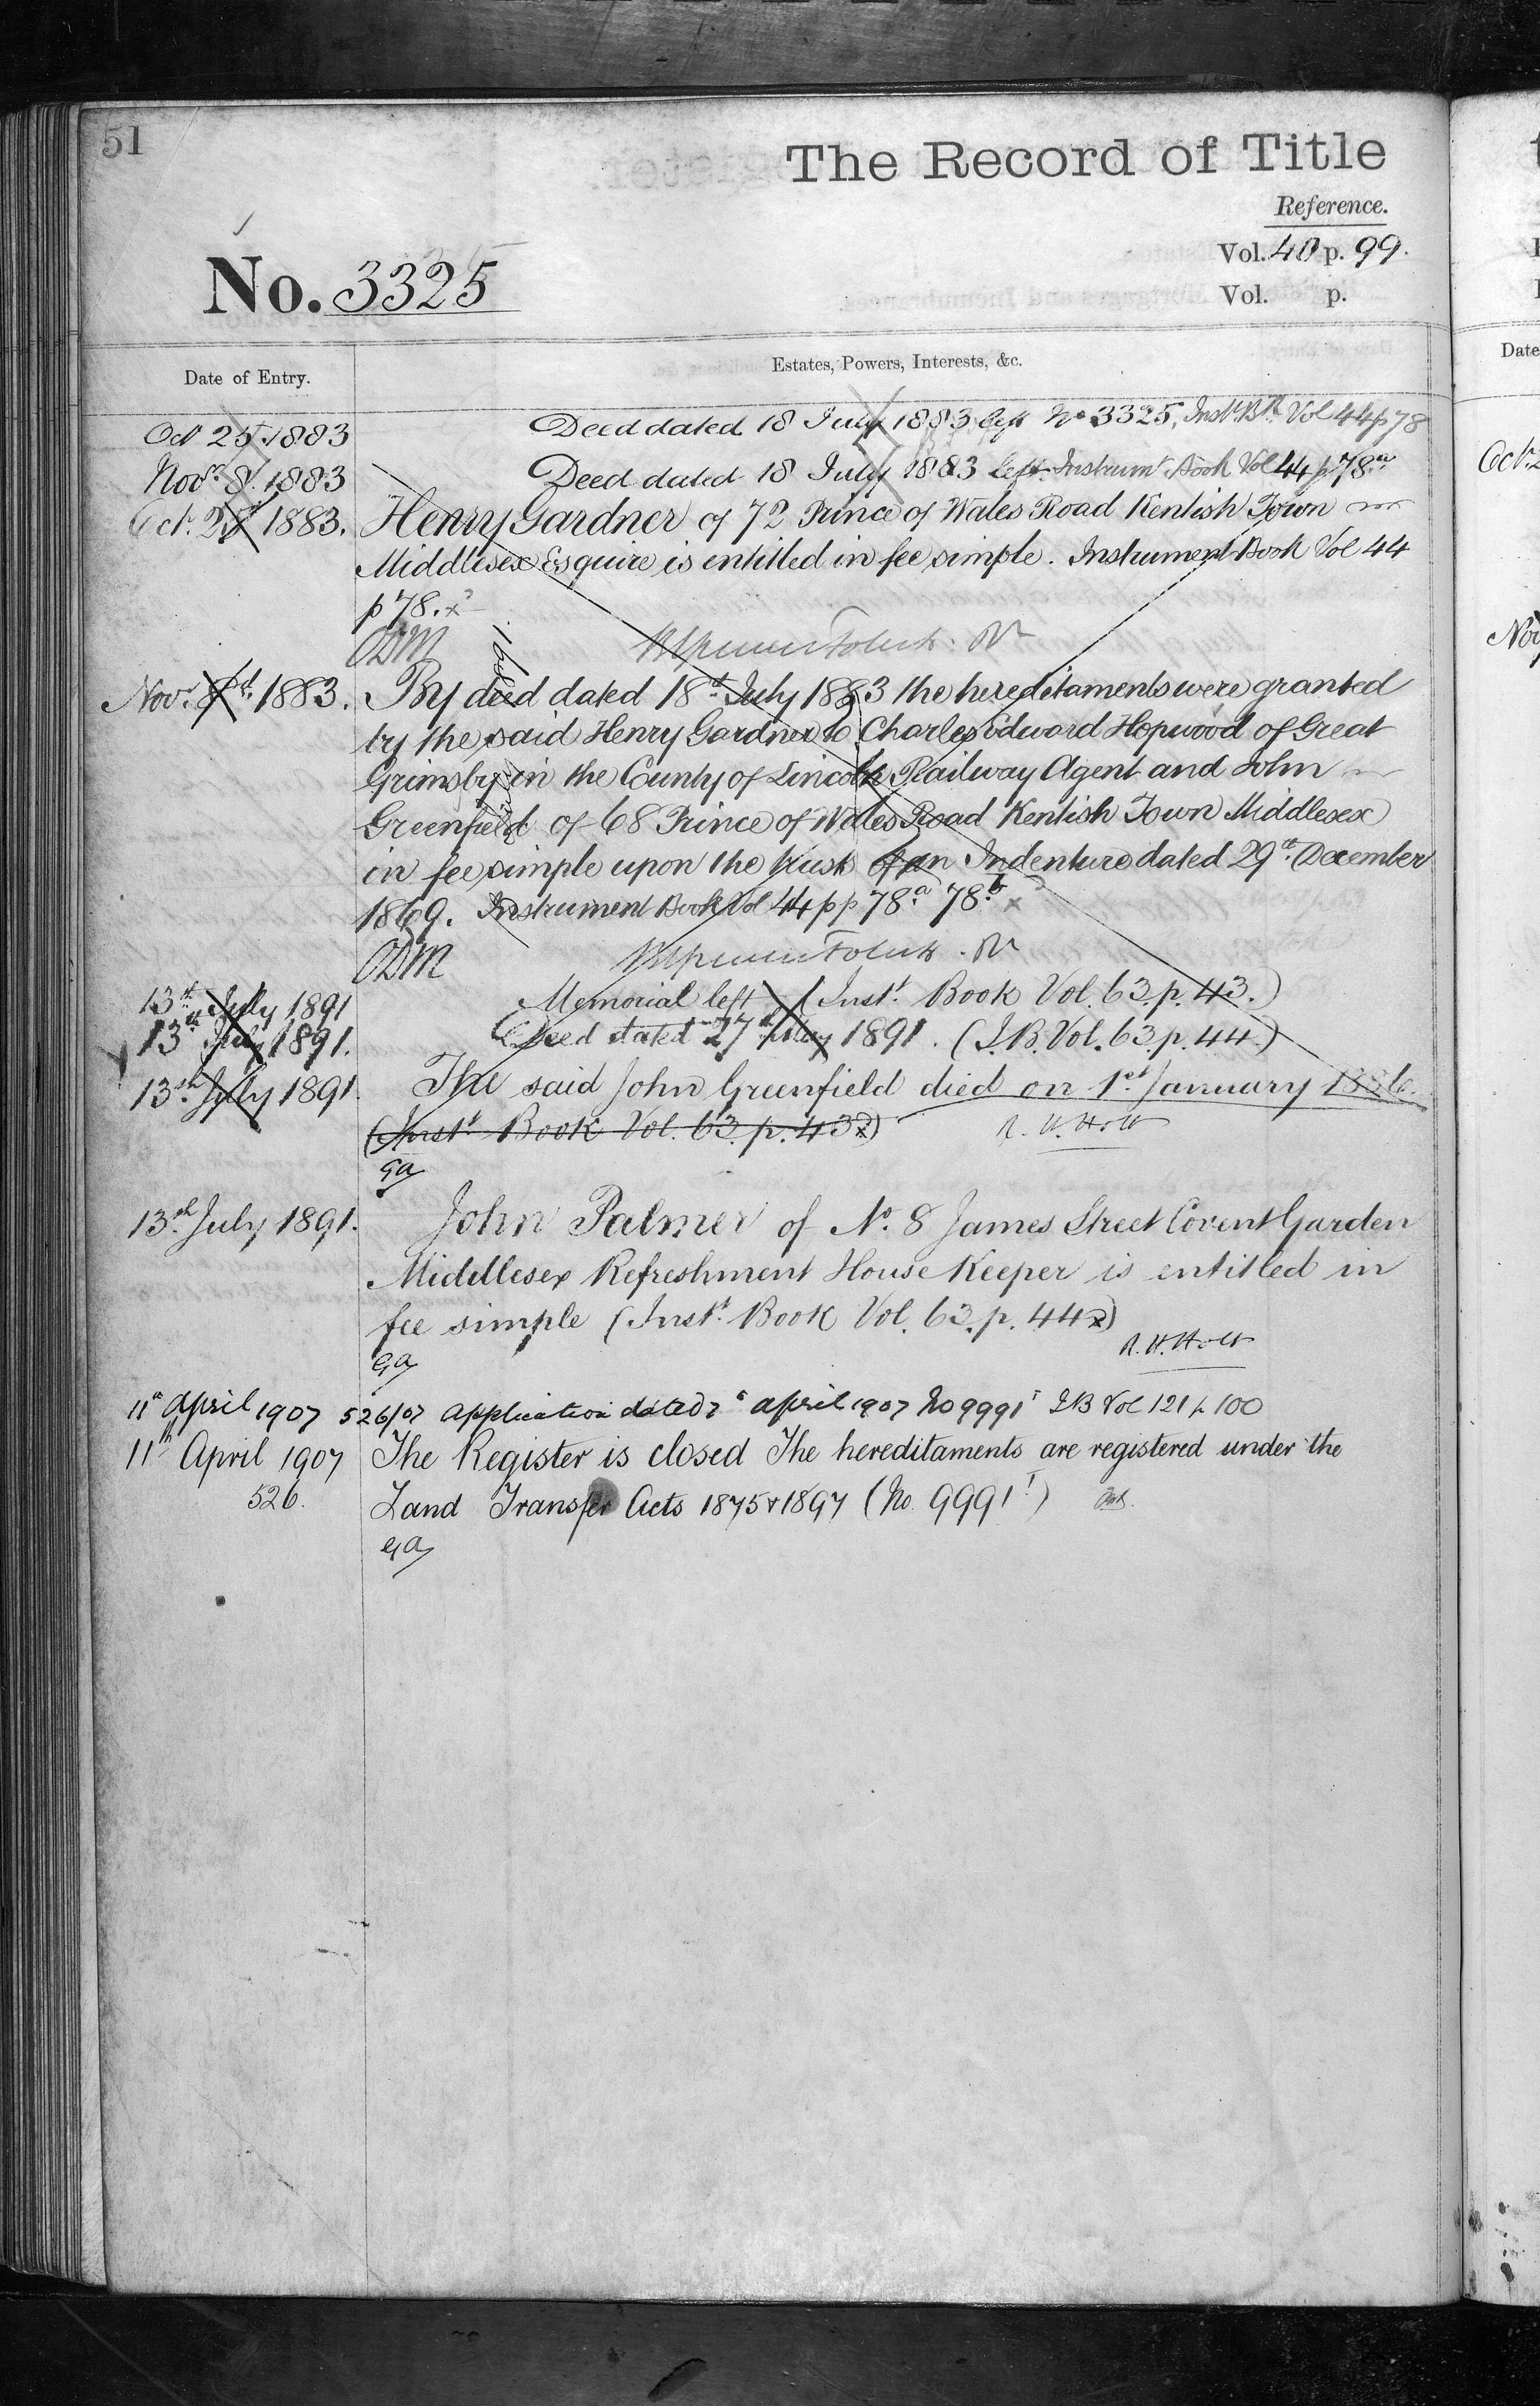 51
The Record of Title
Reference.
Vol. 40 p. 99.
Vol. p.
No. 3325
Date of Entry.
Estates, Powers, Interests, &c.
Oct 25 1883 Deed dated 18 July 1883 left No 3325, Inst. Bk Vol 44 p 78
Novr. 8. 1883 Deed dated 18 July 1883 left. Instrumt Book Vol 44 p 78a
Oct. 25 1883. Henry Gardner of 72 Prince of Wales Road Kentish Town
Middlesex Esquire is entitled in fee simple. Instrument Book Vol 44
p 78. x
ODM
Novr. 8th. 1883. By deed dated 18th July 1883 the hereditaments were granted
by the said Henry Gardner to Charles Edward Hopwood of Great
Grimsby in the County of Lincoln Railway Agent and John
Greenfield of 68 Prince of Wales Road Kentish Town Middlesex
in fee simple upon the trust of an Indenture dated 29th December
1869. Instrument Book Vol 44 pp 78a 78b x
ODM
13th July 1891 Memorial left (Inst. Book Vol. 63. p. 43.)
13th July 1891. Deed dated 27th May 1891. (I.B. Vol. 63. p. 44.)
13th July 1891. The said John Greenfield died on 1st January 1886.
(Inst. Book Vol. 63. p. 43x)
R. H. Holt
GA
13th July 1891. John Palmer of No. 8 James Street Covent Garden
Middlesex Refreshment House Keeper is entitled in
fee simple (Inst. Book Vol. 63. p. 44x)
R. H. Holt
GA
11th April 1907 526/07 Application dated 7th April 1907 No 9991 I B Vol 121 p 100
11th April 1907 The Register is closed The hereditaments are registered under the
526. Land Transfer Acts 1875 & 1897 (No. 9991)
GA
Date
Oct.
Nov